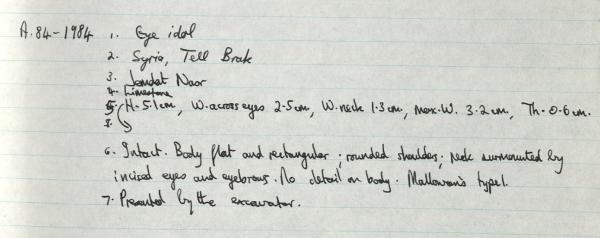 A.84-1984 1. Eye idol
2. Syria, Tell Brak
3. Jemdat Nasr
4. Limestone
5. H-5.1cm, W.across eyes 2.5cm, W.neck 1.3cm, max.W. 3.2cm, Th-0.6cm.
6. Intact. Body flat and rectangular; rounded shoulders; neck surmounted by
incised eyes and eyebrows. No detail on body. Mallowan's type 1.
7. Presented by the excavator.